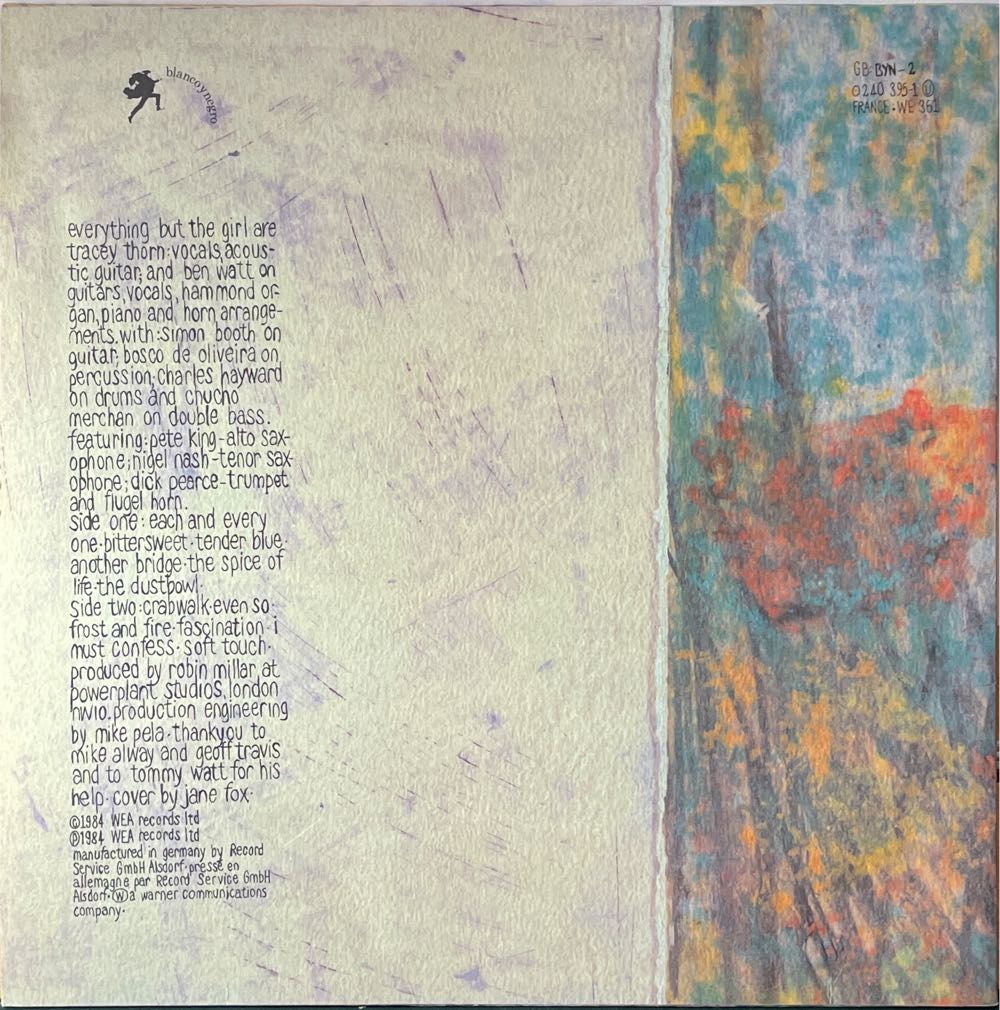 blancoynegro
GB: BYN-2
0240 395-1 Ⓤ
FRANCE·WE 361
everything but the girl are
tracey thorn:vocals,acous-
tic guitar, and ben watt on
guitars, vocals, hammond or-
gan, piano and horn arrange-
ments. with:simon booth on
guitar; bosco de oliveira on
percussion; charles hayward
on drums and chucho
merchan on double bass.
featuring:pete king-alto sax-
ophone;nigel nash-tenor sax-
ophone;dick pearce-trumpet
and flugel horn.
side one:each and every
one·bittersweet·tender blue·
another bridge·the spice of
life·the dustbowl·
side two:crabwalk·even so·
frost and fire·fascination·i
must confess·soft touch·
produced by robin millar at
powerplant studios, london
nw10. production engineering
by mike pela·thankyou to
mike alway and geoff travis
and to tommy watt for his
help·cover by jane fox·
©1984 WEA records ltd
℗1984 WEA records ltd
manufactured in germany by Record
Service GmbH Alsdorf·presse en
allemagne par Record Service GmbH
Alsdorf·Ⓦa warner communications
company·